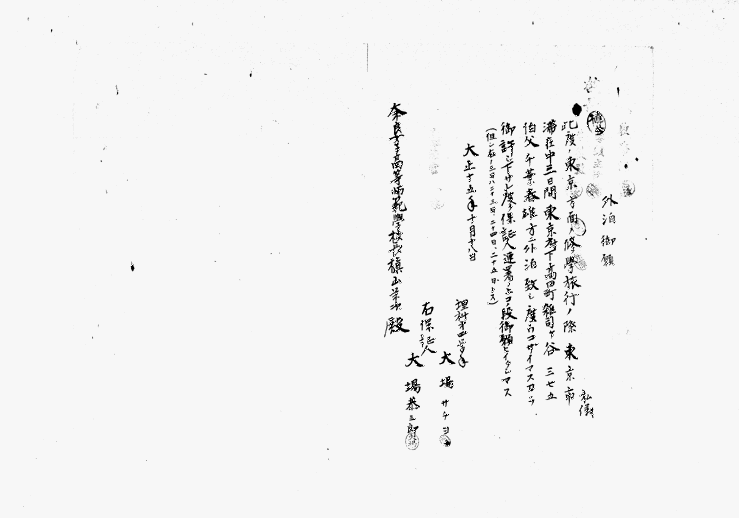 外泊御願
私儀
此度東京方面ヘ修學旅行ノ際東京市
滞在中三日間東京府下高田町雑司ヶ谷三七五
伯父千葉春雄方ニ外泊致シ度ウゴザイマスカラ
御許シ下サレ度保証人連署ノ上コノ段御願ヒイタシマス
(但シ三日ハ二十三日、二十四日、二十五日トス)
大正十五年十月十八日
理科第四学年
大場サチヨ
右保証人
大場恭三郎
奈良女子高等師範學校長槇山栄次殿